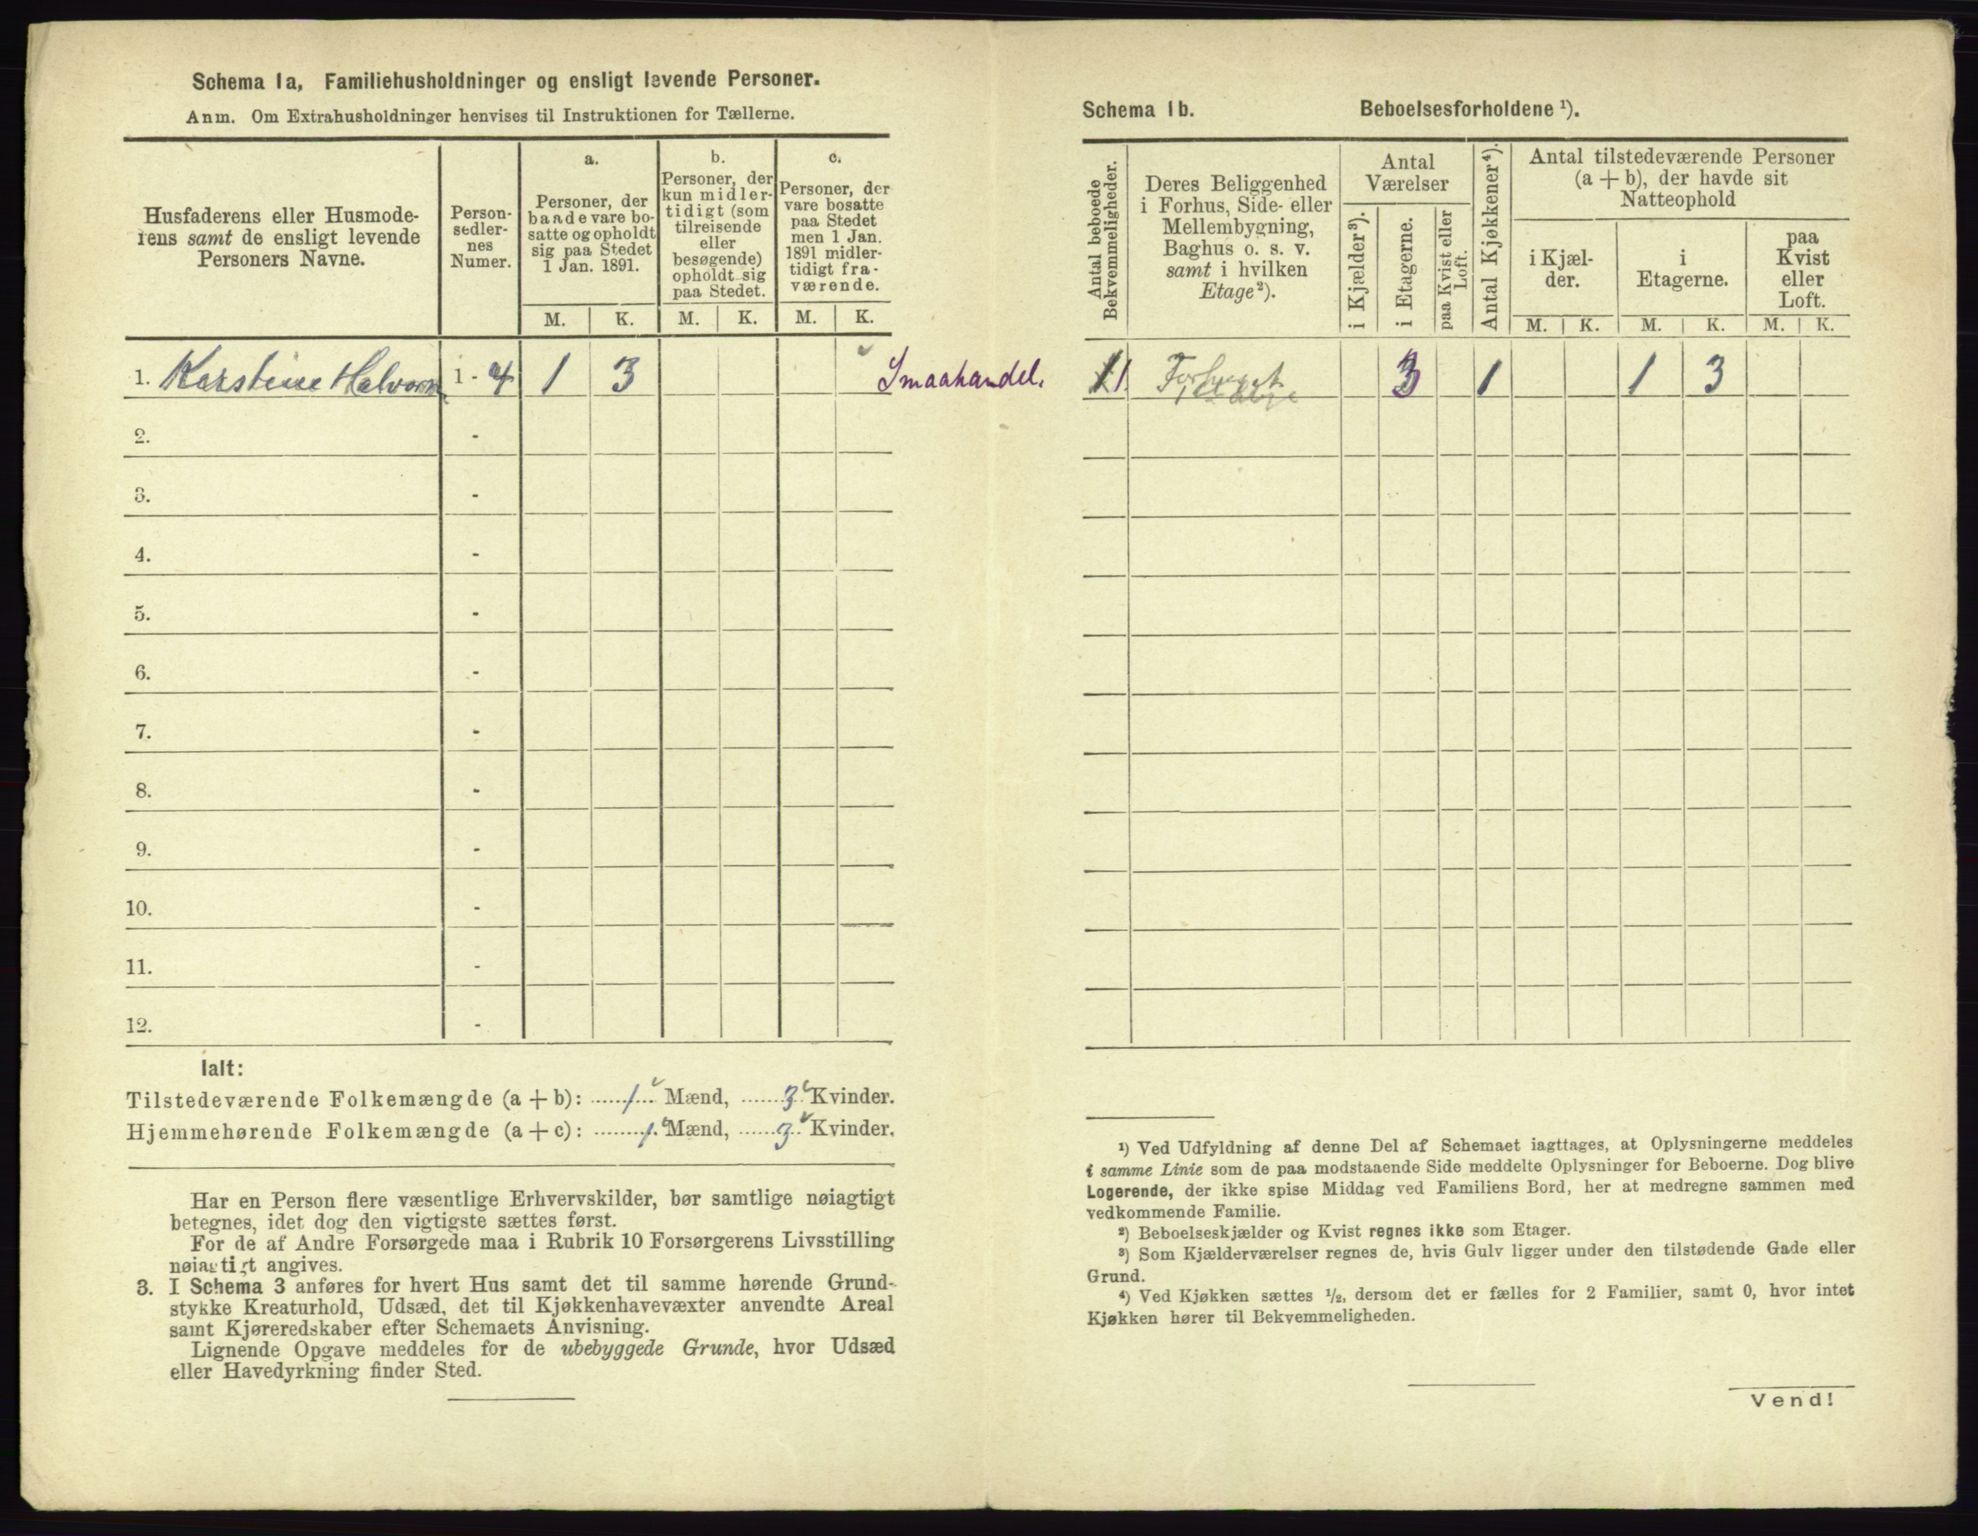 Schema 1a, Familiehusholdninger og ensligt levende Personer.
Anm. Om Extrahusholdninger henvises til Instruktionen for Tællerne.
Husfaderens eller Husmode-
rens samt de ensligt levende
Personers Navne.
Person-
sedler-
nes
Numer.
a.
Personer, der
baade vare bo-
satte og opholdt
sig paa Stedet
1 Jan. 1891.
b.
Personer, der
kun midler-
tidigt (som
tilreisende
eller
besøgende)
opholdt sig
paa Stedet.
c.
Personer, der
vare bosatte
paa Stedet
men 1 Jan.
1891 midler-
tidigt fra-
værende.
M. K. M. K. M. K.
1. Karstine Halvorsen 1 - 4 1 3 Smaahandel.
2. -
3. -
4. -
5. -
6. -
7. -
8. -
9. -
10. -
11. -
12. -
Ialt:
Tilstedeværende Folkemængde (a + b): 1 Mænd, 3 Kvinder.
Hjemmehørende Folkemængde (a + c): 1 Mænd, 3 Kvinder.
Har en Person flere væsentlige Erhvervskilder, bør samtlige nøiagtigt
betegnes, idet dog den vigtigste sættes først.
For de af Andre Forsørgede maa i Rubrik 10 Forsørgerens Livsstilling
nøiagtigt angives.
3. I Schema 3 anføres for hvert Hus samt det til samme hørende Grund-
stykke Kreaturhold, Udsæd, det til Kjøkkenhavevæxter anvendte Areal
samt Kjøreredskaber efter Schemaets Anvisning.
Lignende Opgave meddeles for de ubebyggede Grunde, hvor Udsæd
eller Havedyrkning finder Sted.
Schema 1b. Beboelsesforholdene ¹).
Antal beboede
Bekvemmeligheder.
Deres Beliggenhed
i Forhus, Side- eller
Mellembygning,
Baghus o. s. v.
samt i hvilken
Etage²).
Antal
Værelser
i Kjælder³).
i Etagerne.
paa Kvist eller
Loft.
Antal Kjøkkener⁴).
Antal tilstedeværende Personer
(a + b), der havde sit
Natteophold
i Kjæl-
der.
i
Etagerne.
paa
Kvist
eller
Loft.
M. K. M. K. M. K.
1 3 1 1 3
¹) Ved Udfyldning af denne Del af Schemaet iagttages, at Oplysningerne meddeles
i samme Linie som de paa modstaaende Side meddelte Oplysninger for Beboerne. Dog blive
Logerende, der ikke spise Middag ved Familiens Bord, her at medregne sammen med
vedkommende Familie.
²) Beboelseskjælder og Kvist regnes ikke som Etager.
³) Som Kjælderværelser regnes de, hvis Gulv ligger under den tilstødende Gade eller
Grund.
⁴) Ved Kjøkken sættes ½, dersom det er fælles for 2 Familier, samt 0, hvor intet
Kjøkken hører til Bekvemmeligheden.
Vend!